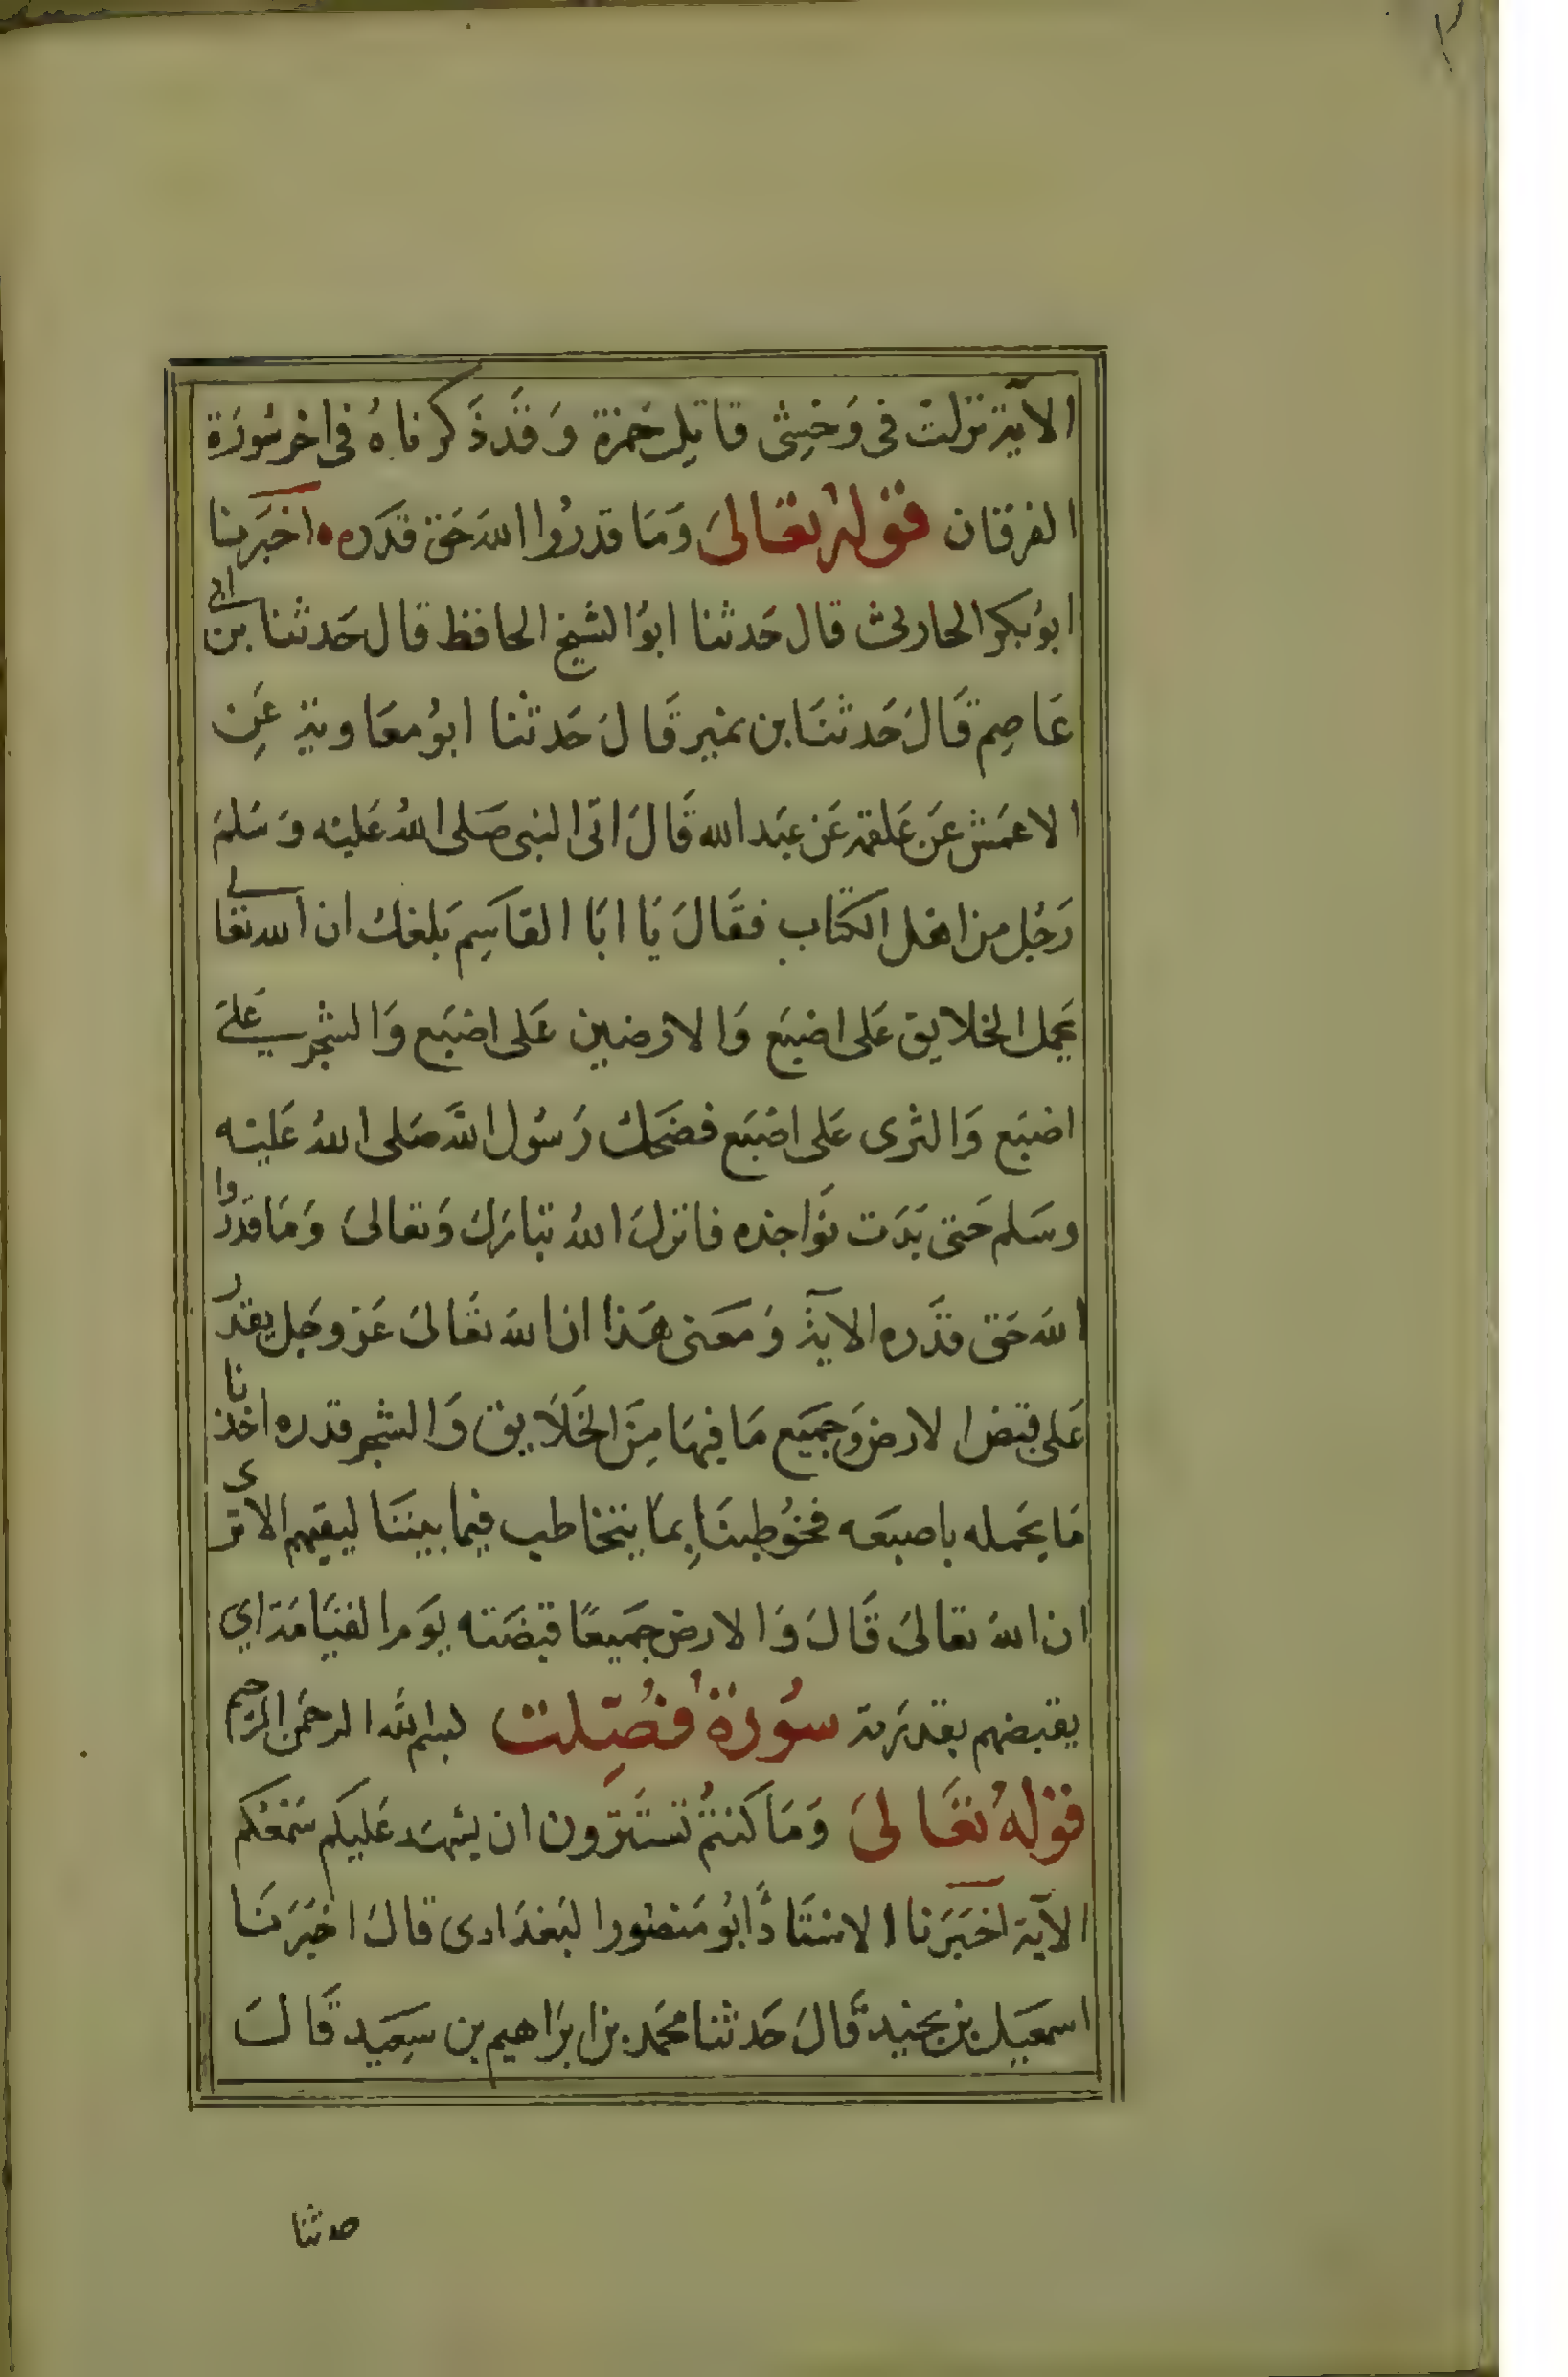 الآية نزلت في وَحْشِي قاتِل حَمزة وَقَد ذَكرناهُ في اخر سُورَة
الفرقان قوله تعَالىَ وَمَا قدرُوا اللهَ حَق قدَره اخبَرنا
ابوُ بكر الحارثي قال حَدثنا ابوُ الشيخ الحافظ قال حَدثنا بن ابي
عَاصِم قَالَ حَدثنَا بن نمير قَالَ حَدثنا ابوُ معَاوية عَن
الاعمَش عَن عَلقمة عَن عبَد الله قَالَ اتى النبى صَلى اللهُ عَليْه وَسَلمَ
رَجُل من اهل الكتاب فقَالَ يَا ابَا القاسِم بَلغكَ ان الله تعالى
يحمل الخلايق عَلى اصبَع وَالارضين عَلى اصبَع وَالشجر عَلىَ
اصبَع وَالثرى عَلى اصْبَع فضَحكَ رَسُول اللَّه صَلى اللهُ عَليْه
وسَلم حَتى بَدَت نوَاجذه فانزلَ اللهُ تبَارَكَ وَتعالىَ وَمَا قدَرُوا
اللهَ حَق قدَره الآية وَمعَنى هَذا ان اللهَ تعَالىَ عَز وجَل يقدر
عَلى قبَض الارض وَجميَع مَا فيهَا مِنَ الخَلَايق وَالشجر قدره اخذنا
مَا يحَمله باصبعَه فخوُطبنَا بِمَا يتخاطب فيمَا بيننَا ليفهم الا ترى
ان اللهَ تعالىَ قَالَ وَالارض جمَيعًا قبضَته يوَم القيَامَة اي
يقبضهم بقدرَته سُورَةُ فُصِّلت بسم اللَّه الرحمَن الرحيم
قوْلهُ تعَالىَ وَمَا كنتمُ تسَتترَون ان يشهَد عَليكم سَمْعكم
الآية اخبَرَنا الاستَاذ ابوُ مَنصُور البَغدَادى قالَ اخبَرَنَا
اسمعَيل بن نجيد قالَ حَدثنا محمَد بن ابرَاهيم بن سعِيَد قَالَ
حدثنا